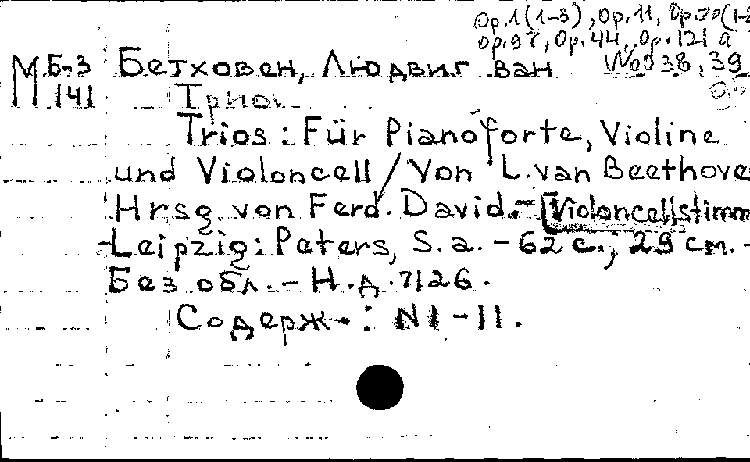 Op.1(1-3), Op.11, Op.70(1-2
Op.97, Op.44, Op.121a
М Б-3 Бетховен, Людвиг ван
141 Трио.
Trios: Für Pianoforte, Violine
und Violoncell / Von L. van Beethove
Hrsg. von Ferd. David. - [Violoncellstimm
- Leipzig: Peters, S.a. - 62 c., 29 cm. -
Без обл. - Н.д. 7126.
Содерж-: N1-11.